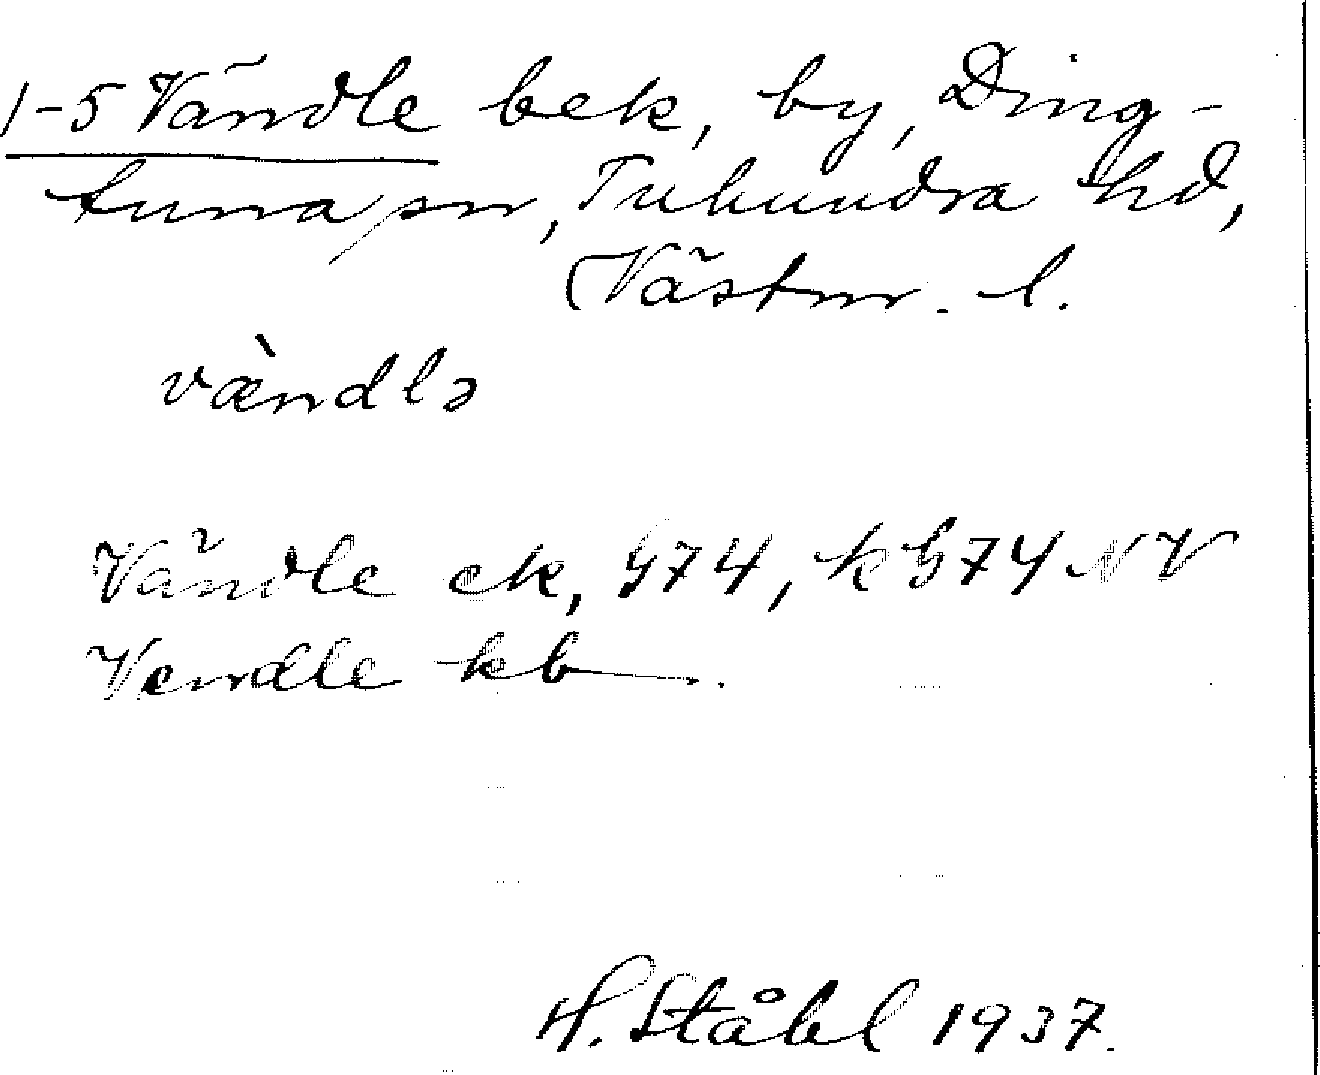 1-5 Vändle bek, by, Ding-
tuna sn, Tuhundra hd,
Västm. l.
væ̀ndlə
Vändle ek, G74, k G74 NV
Vendle kb
H. Ståhl 1937.